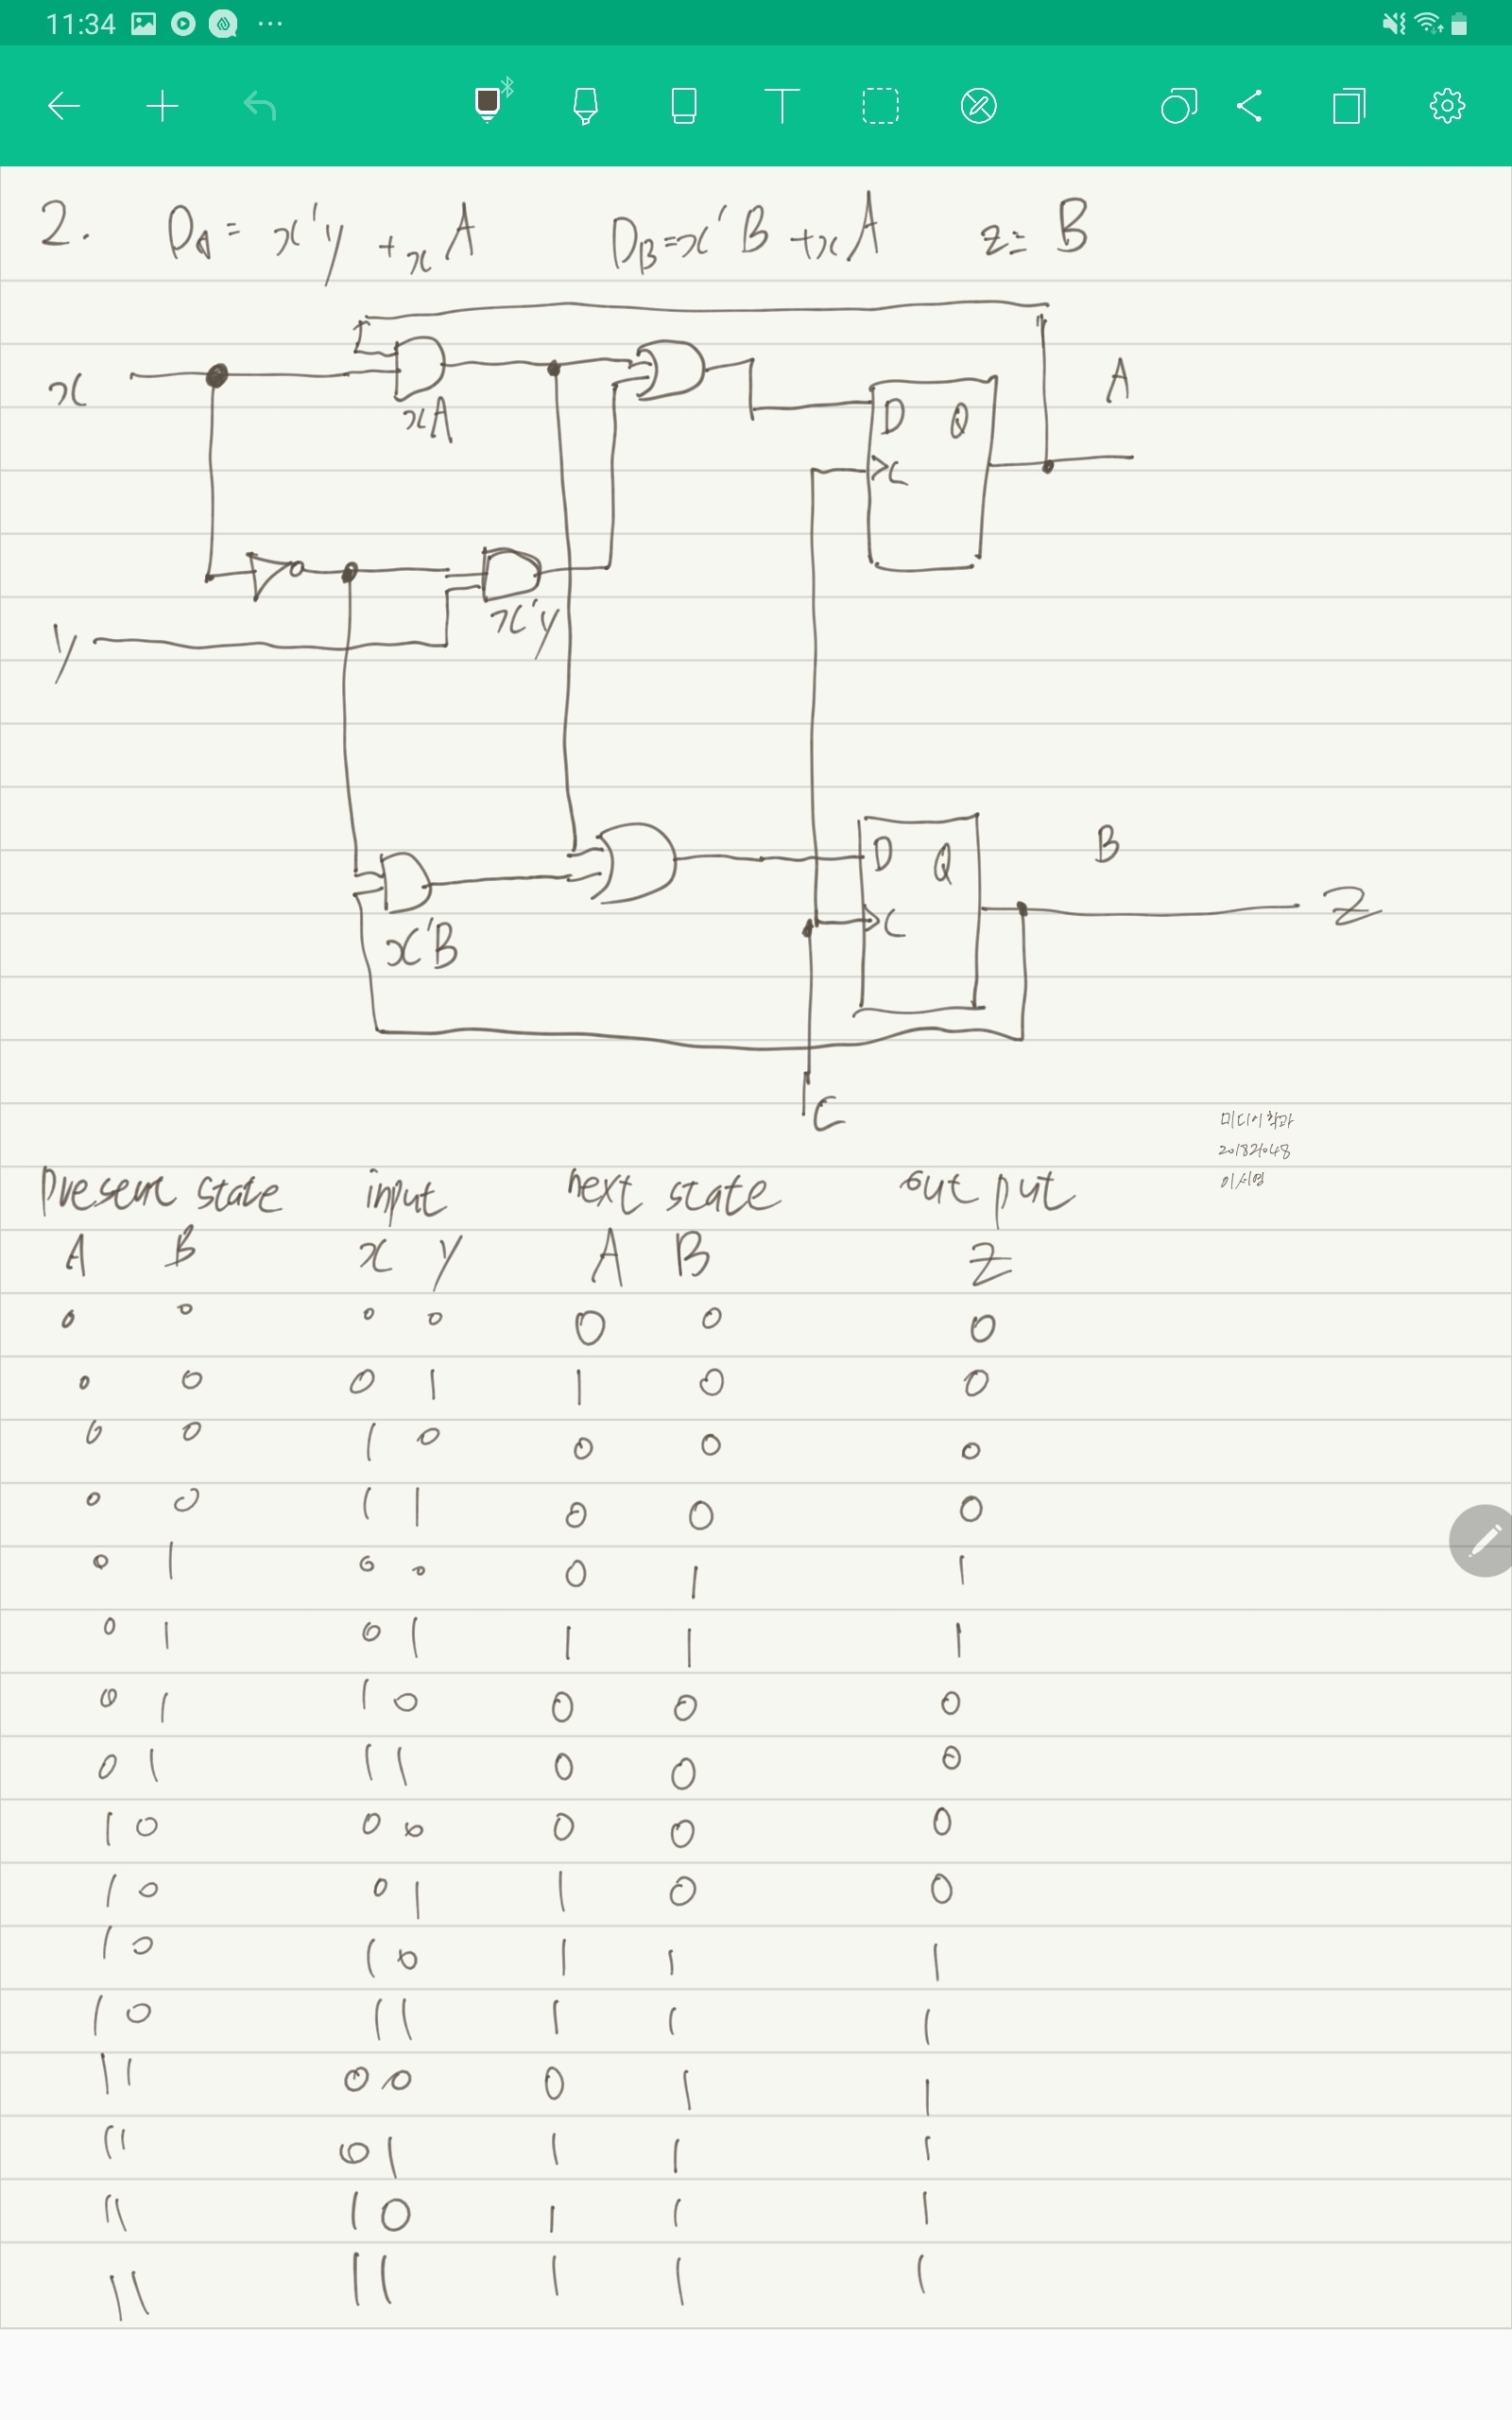 11:34
2. DA = x'y + xA DB = x'B + xA z = B
x
xA
D Q
A
C
x'y
y
D Q
B
C
Z
x'B
C
미디어학과
201821048
present state input next state output
A B x y A B Z
0 0 0 0 0 0 0
0 0 0 1 1 0 0
0 0 1 0 0 0 0
0 0 1 1 0 0 0
0 1 0 0 0 1 1
0 1 0 1 1 1 1
0 1 1 0 0 0 0
0 1 1 1 0 0 0
1 0 0 0 0 0 0
1 0 0 1 1 0 0
1 0 1 0 1 1 1
1 0 1 1 1 1 1
1 1 0 0 0 1 1
1 1 0 1 1 1 1
1 1 1 0 1 1 1
1 1 1 1 1 1 1